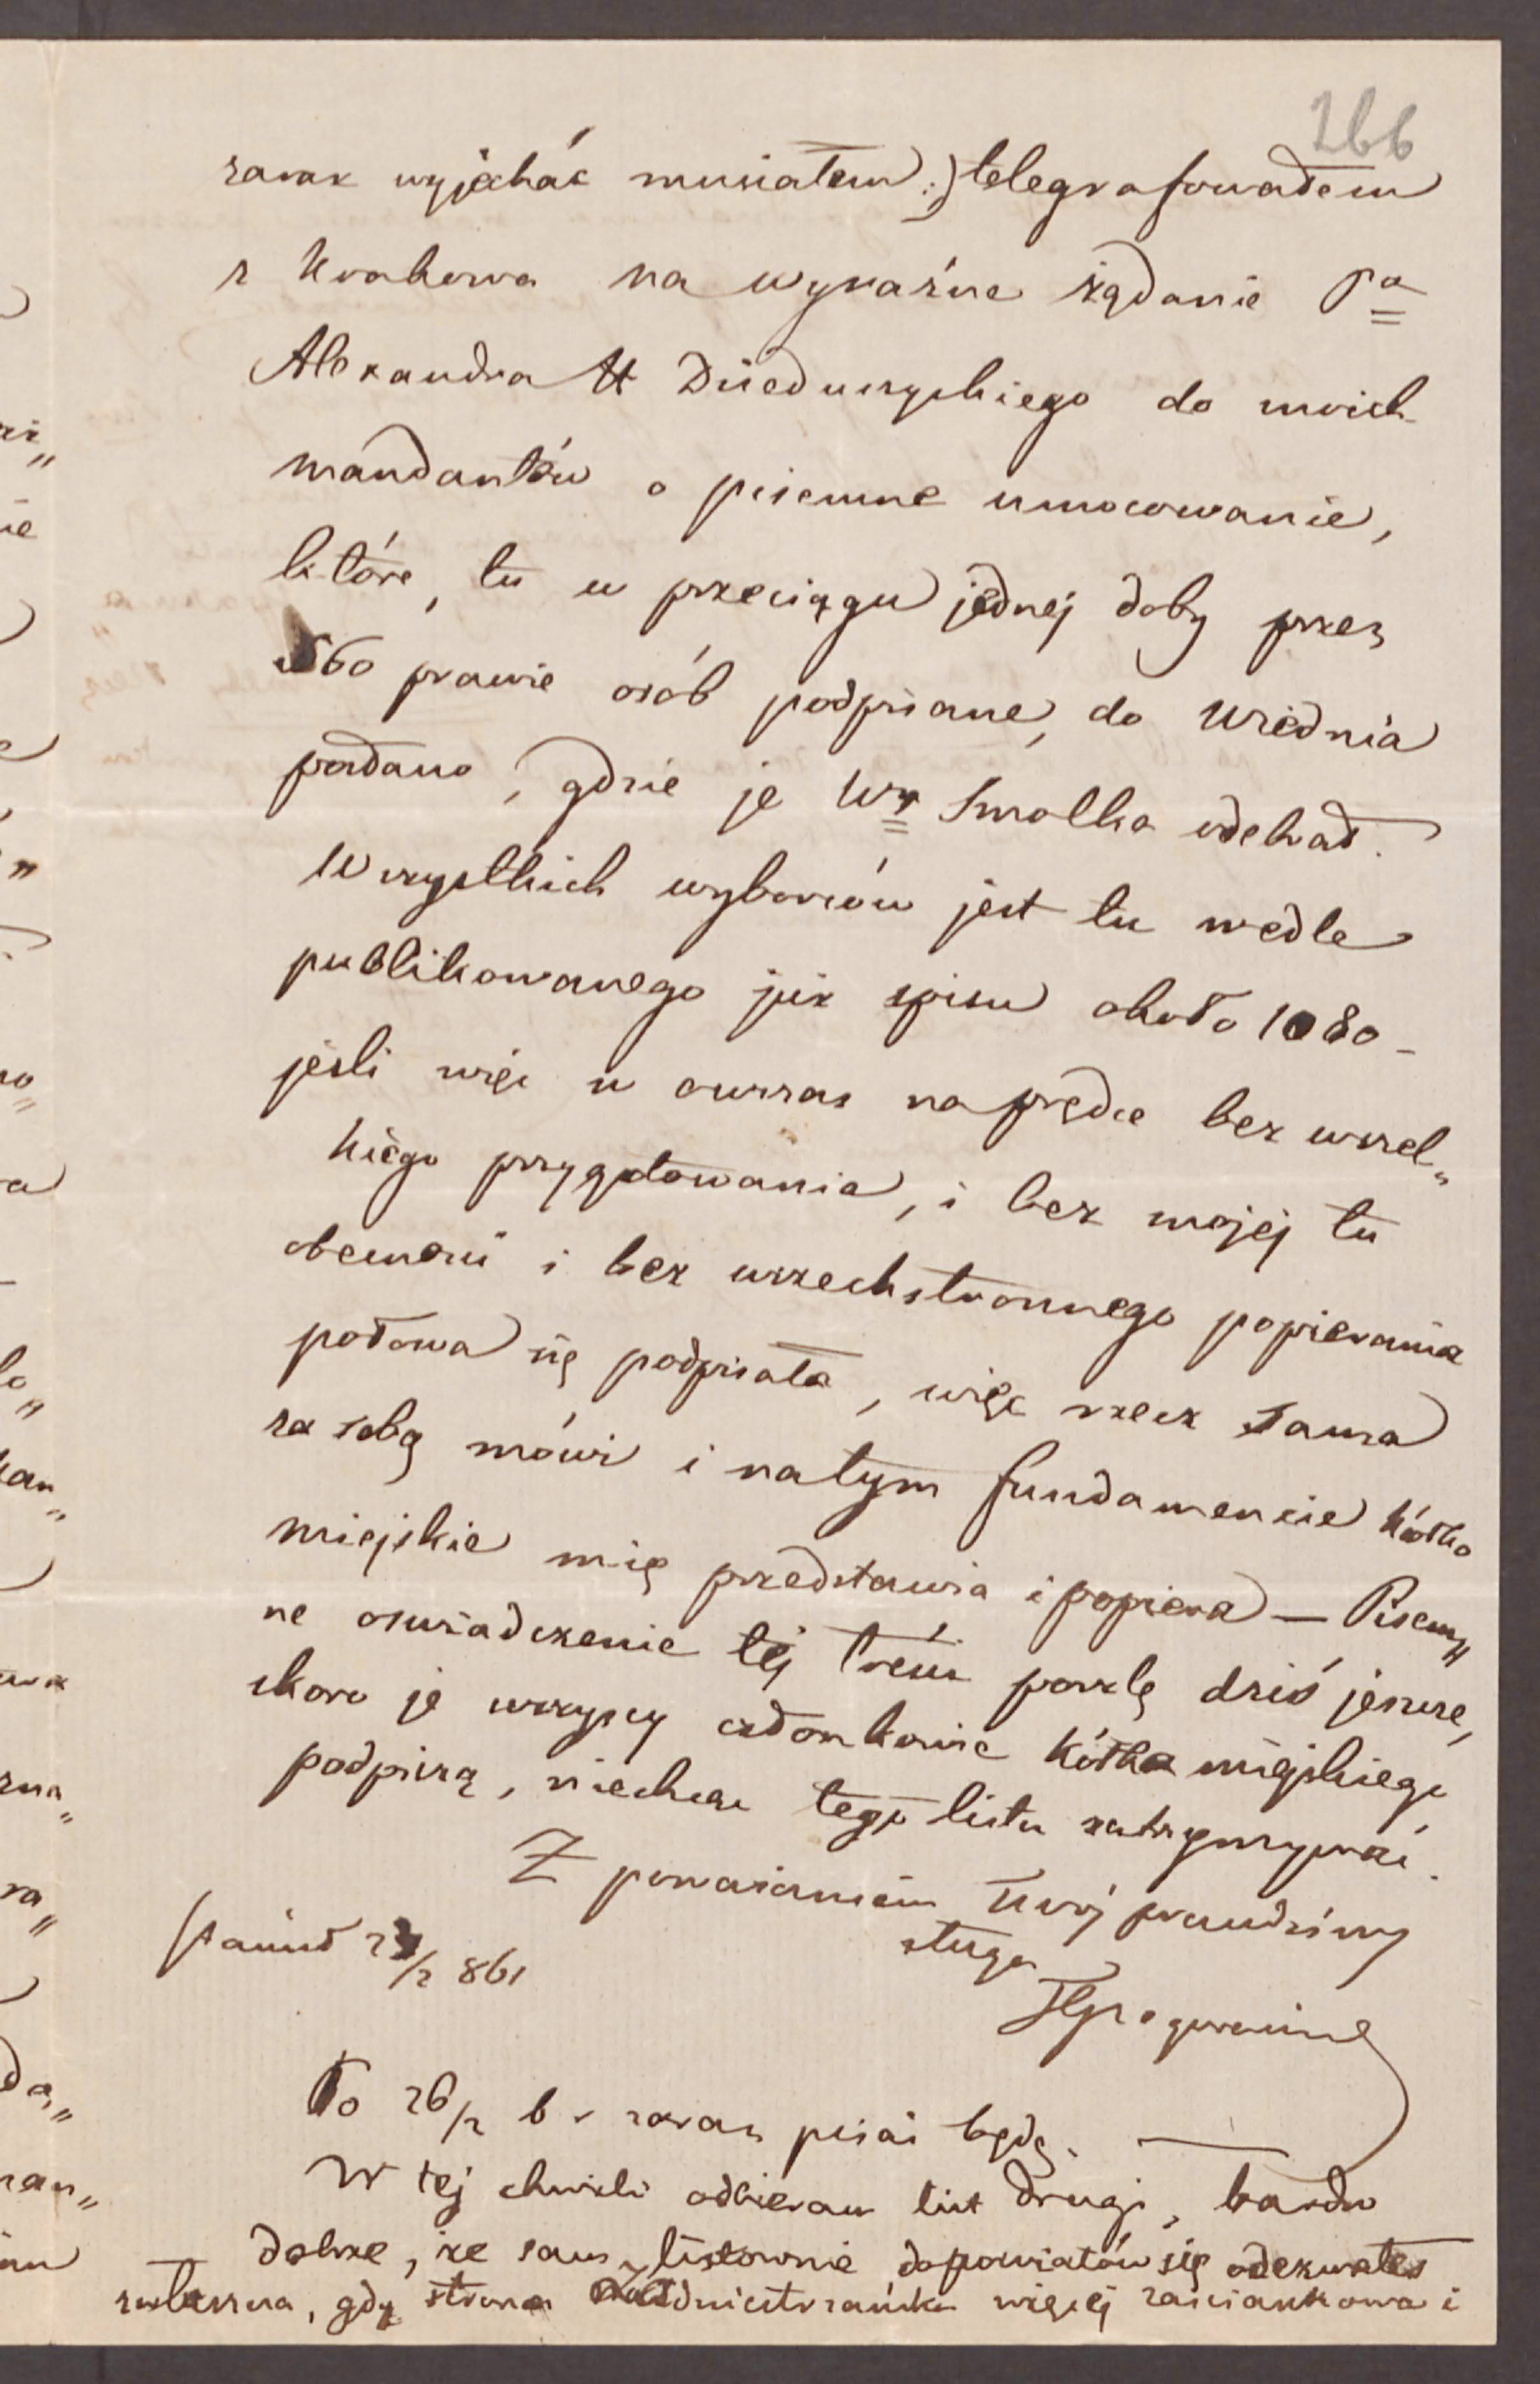 266
zaraz wyjechać musiałem :) telegrafowałem
z Krakowa na wyraźne żądanie Pa
Alexandra H Dzieduszyckiego do moich
mandantów o pisemne umocowanie,
które, tu w przeciągu jednej doby przez
560 prawie osób podpisane, do Wiednia
podano, gdzie je Wy Smolka odebrał.
Wszystkich wyborców jest tu wedle
publikowanego już spisu około 1080 –
jeśli więc w owczas naprędce bez wszel„
kiego przygotowania, i bez mojej tu
obecności i bez wszechstronnego popierania
połowa się podpisała, więc rzecz sama
za sobą mówi i na tym fundamencie kółko
miejskie mię przedstawia i popiera — Pisem„
ne oświadczenie tej treści poszlę dziś jeszcze,
skoro je wszyscy członkowie kółka miejskiego
podpiszą, niechcąc tego listu zatrzymywać.
Z poważaniem Twój prawdziwy
sługa
23/2 861
Po 26/2 b r zaraz pisać będę. —
W tej chwili odbieram list drugi, bardzo
— dobrze, że sam listownie do powiatów się odezwałeś
zwłaszcza, gdy strona więcej zaściankowa i